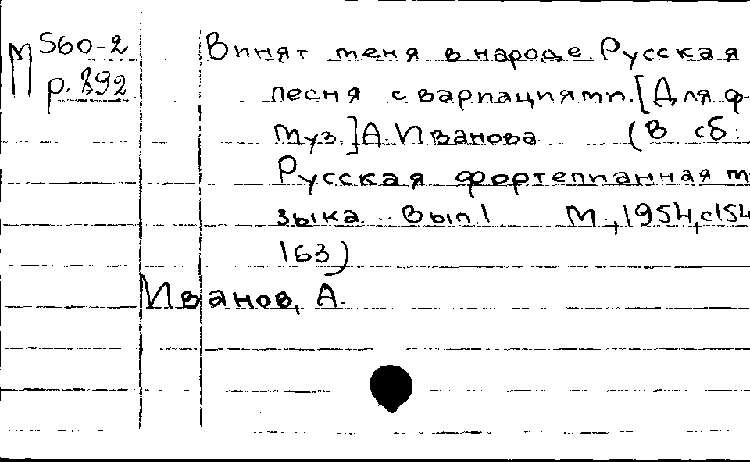 М 560-2
р. 892
Винят меня в народе. Русская
песня с вариациями. [Для ф-
Муз.] А. Иванова (В сб:
Русская фортепианная м
зыка. Вып. 1 М., 1954, с154
163)
Иванов, А.